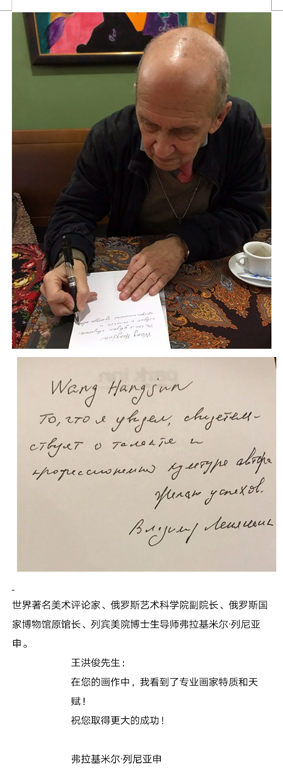 Wang Hangjun
То, что я увидел, свидетель-
ствует о таланте и
профессиональной культуре автора
Желаю успехов.
Владимир Леняшин
世界著名美术评论家、俄罗斯艺术科学院副院长、俄罗斯国
家博物馆原馆长、列宾美院博士生导师弗拉基米尔·列尼亚
申。
王洪俊先生：
在您的画作中，我看到了专业画家特质和天
赋！
祝您取得更大的成功！
弗拉基米尔·列尼亚申